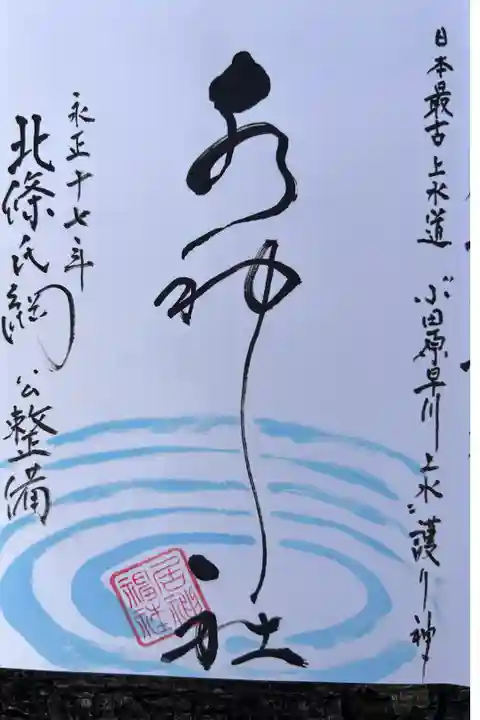 日本最古上水道 小田原早川上水護り神
水神社
永正十七年
北條氏綱公整備
居神神社